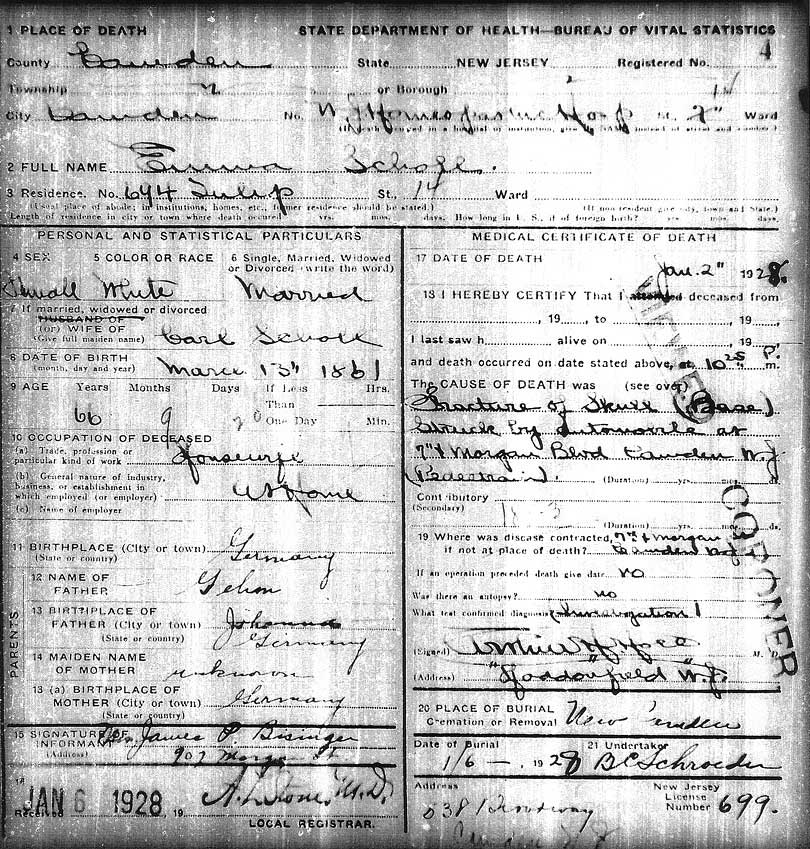 1 PLACE OF DEATH STATE DEPARTMENT OF HEALTH—BUREAU OF VITAL STATISTICS
4
County Camden State NEW JERSEY Registered No.
Township or Borough
City Camden No. N.J. Homeopathic Hosp St. 2" Ward
(If death occurred in a hospital or institution, give its NAME instead of street and number.)
2 FULL NAME Emma Scholl.
3 Residence. No. 694 Tulip St., 14 Ward
(Usual place of abode; in institutions, homes, etc., former residence should be stated.) (If non resident give city, town and State.)
Length of residence in city or town where death occured yrs. mos. days. How long in U. S., if of foreign birth? yrs. mos. days.
PERSONAL AND STATISTICAL PARTICULARS
4 SEX 5 COLOR OR RACE 6 Single, Married, Widowed
or Divorced (write the word)
White Married
7 If married, widowed or divorced
HUSBAND OF
(or) WIFE OF
(Give full maiden name) Carl Scholl
8 DATE OF BIRTH
(month, day and year) March 13" 1861
9 AGE Years Months Days If Less Hrs.
Than
66 9 20 One Day Min.
10 OCCUPATION OF DECEASED
(a) Trade, profession or
particular kind of work Housewife
(b) General nature of industry,
business, or establishment in
which employed (or employer) at Home
(c) Name of employer
11 BIRTHPLACE (City or town) Germany
(State or country)
12 NAME OF
FATHER
PARENTS
13 BIRTHPLACE OF
FATHER (City or town) Johanna
(State or country) Germany
14 MAIDEN NAME
OF MOTHER unknown
13 (a) BIRTHPLACE OF
MOTHER (City or town) Germany
(State or country)
15 SIGNATURE OF
INFORMANT Mrs. James P. Bisinger
(Address) 907 Morgan St.
Received JAN 6 1928, 19
M.D.
LOCAL REGISTRAR.
MEDICAL CERTIFICATE OF DEATH
17 DATE OF DEATH
Jan. 2" 1928.
18 I HEREBY CERTIFY That I attended deceased from
, 19 , to , 19
I last saw h alive on , 19
and death occurred on date stated above, at 10 25 P. m.
The CAUSE OF DEATH was (see over)
Fracture of Skull (Base)
Struck by automobile at
7" & Morgan Blvd Camden N.J.
(Pedestrain). (Duration) yrs. mos. ds.
Contributory
(Secondary)
(Duration) yrs. mos. ds.
19 Where was disease contracted, 7" & Morgan
if not at place of death? Camden N.J.
If an operation preceded death give date no
Was there an autopsy? no
What test confirmed diagnosis (Investigation)
(Signed) M. D.
(Address) "Haddonfield" N.J.
VIEWED
CORONER
20 PLACE OF BURIAL
Cremation or Removal New Camden
Date of Burial 21 Undertaker
1/6 —, 1928 B C Schroeder
Address New Jersey
License
Number 699.
538 Broadway
Camden N.J.